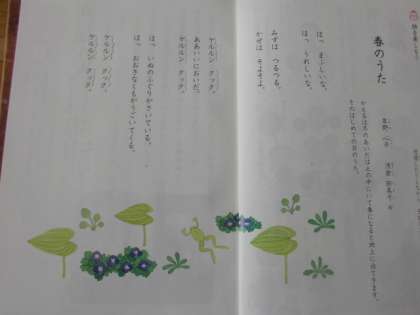 春のうた
草野 心平
かえるは冬のあいだは土の中にいて春になると地上に出てきます。
そのはじめての日のうた。
ほっ まぶしいな。
ほっ うれしいな。
みずは つるつる。
かぜは そよそよ。
ケルルン クック。
ああいいにおいだ。
ケルルン クック。
ほっ いぬのふぐりがさいている。
ほっ おおきなくもがうごいてくる。
ケルルン クック。
ケルルン クック。